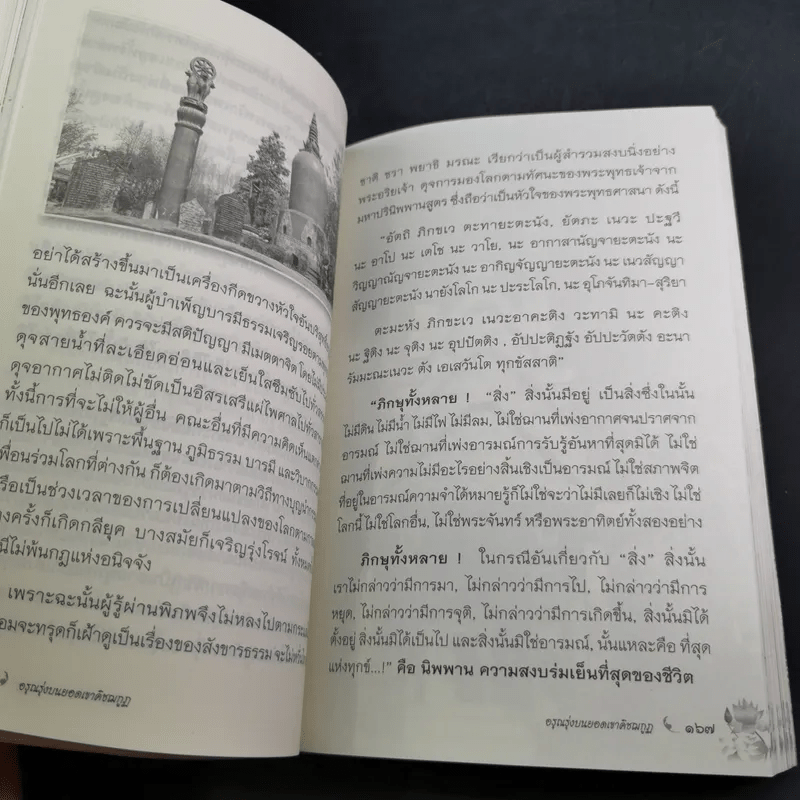 อย่าได้สร้างขึ้นมาเป็นเครื่องกีดขวางหัวใจอันบริสุทธิ์
นั่นอีกเลย ฉะนั้นผู้บำเพ็ญบารมีธรรมเจริญรอยตาม
ของพุทธองค์ ควรจะมีสติปัญญา มีเมตตาจิต โดยไม่
ดุจสายน้ำที่ละเอียดอ่อนและเย็นใสซึมซับไปทั่ว
ดุจอากาศไม่ติดไม่ขัดเป็นอิสรเสรีแผ่ไพศาลไปทั่ว
ทั้งนี้การที่จะไม่ให้ผู้อื่น คณะอื่นที่มีความคิดเห็น
ก็เป็นไปไม่ได้เพราะพื้นฐาน ภูมิธรรม บารมี และวิบาก
เพื่อนร่วมโลกที่ต่างกัน ก็ต้องเกิดมาตามวิถีทางบุญนำ
รือเป็นช่วงเวลาของการเปลี่ยนแปลงของโลกตาม
งครั้งก็เกิดกลียุค บางสมัยก็เจริญรุ่งโรจน์ ทั้งหมด
นี้ไม่พ้นกฎแห่งอนิจจัง
เพราะฉะนั้นผู้รู้ผ่านพิภพจึงไม่หลงไปตาม
อมจะทรุดก็เฝ้าดูเป็นเรื่องของสังขารธรรม จะไม่
อรุณรุ่งบนยอดเขาคิชฌกูฏ
ชาติ ชรา พยาธิ มรณะ เรียกว่าเป็นผู้สำรวมสงบนิ่งอย่าง
พระอริยเจ้า ดุจการมองโลกตามทัศนะของพระพุทธเจ้าจาก
มหาปรินิพพานสูตร ซึ่งถือว่าเป็นหัวใจของพระพุทธศาสนา ดังนี้
“อัตถิ ภิกขเว ตะทายะตะนัง, ยัตภะ เนวะ ปะฐวี
นะ อาโป นะ เตโช นะ วาโย, นะ อากาสานัญจายะตะนัง นะ
วิญญาณัญจายะตะนัง นะ อากิญจัญญายะตะนัง นะ เนวสัญญา
สัญญายะตะนัง นายังโลโก นะ ปะระโลโก, นะ อุโภจันทิมา-สุริยา
ตะมะหัง ภิกขะเว เนวะอาคะติง วะทามิ นะ คะติง
นะ ฐิติง นะ จุติง นะ อุปปัตติง , อัปปะติฏฐัง อัปปะวัตตัง อะนา
รัมมะณะเนวะ ตัง เอเสวันโต ทุกขัสสาติ”
“ภิกษุทั้งหลาย ! “สิ่ง” สิ่งนั้นมีอยู่ เป็นสิ่งซึ่งในนั้น
ไม่มีดิน ไม่มีน้ำ ไม่มีไฟ ไม่มีลม, ไม่ใช่ฌานที่เพ่งอากาศจนปราศจาก
อารมณ์ ไม่ใช่ฌานที่เพ่งอารมณ์การรับรู้อันหาที่สุดมิได้ ไม่ใช่
ฌานที่เพ่งความไม่มีอะไรอย่างสิ้นเชิงเป็นอารมณ์ ไม่ใช่สภาพจิต
ที่อยู่ในอารมณ์ความจำได้หมายรู้ก็ไม่ใช่จะว่าไม่มีเลยก็ไม่เชิง ไม่ใช่
โลกนี้ ไม่ใช่โลกอื่น, ไม่ใช่พระจันทร์ หรือพระอาทิตย์ทั้งสองอย่าง
ภิกษุทั้งหลาย ! ในกรณีอันเกี่ยวกับ “สิ่ง” สิ่งนั้น
เราไม่กล่าวว่ามีการมา, ไม่กล่าวว่ามีการไป, ไม่กล่าวว่ามีการ
หยุด, ไม่กล่าวว่ามีการจุติ, ไม่กล่าวว่ามีการเกิดขึ้น, สิ่งนั้นมิได้
ตั้งอยู่ สิ่งนั้นมิได้เป็นไป และสิ่งนั้นมิใช่อารมณ์, นั้นแหละคือ ที่สุด
แห่งทุกข์...!” คือ นิพพาน ความสงบร่มเย็นที่สุดของชีวิต
อรุณรุ่งบนยอดเขาคิชฌกูฏ ๑๖๗